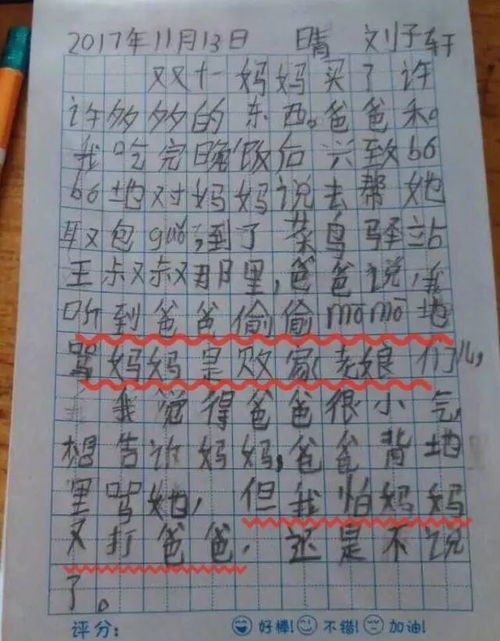 2017年11月13日 晴 刘子轩
双十一妈妈买了许
许多多的东西。爸爸和
我吃完晚饭后兴致bó
bó地对妈妈说去帮她
取包guǒ,到了菜鸟驿站
王叔叔那里,爸爸说,我
听到爸爸偷偷mōmō地
骂妈妈是败家老娘们儿,
我觉得爸爸很小气,
想告诉妈妈,爸爸背地
里骂她,但我怕妈妈
又打爸爸,还是不说
了。
评分: 好棒! 不错! 加油!